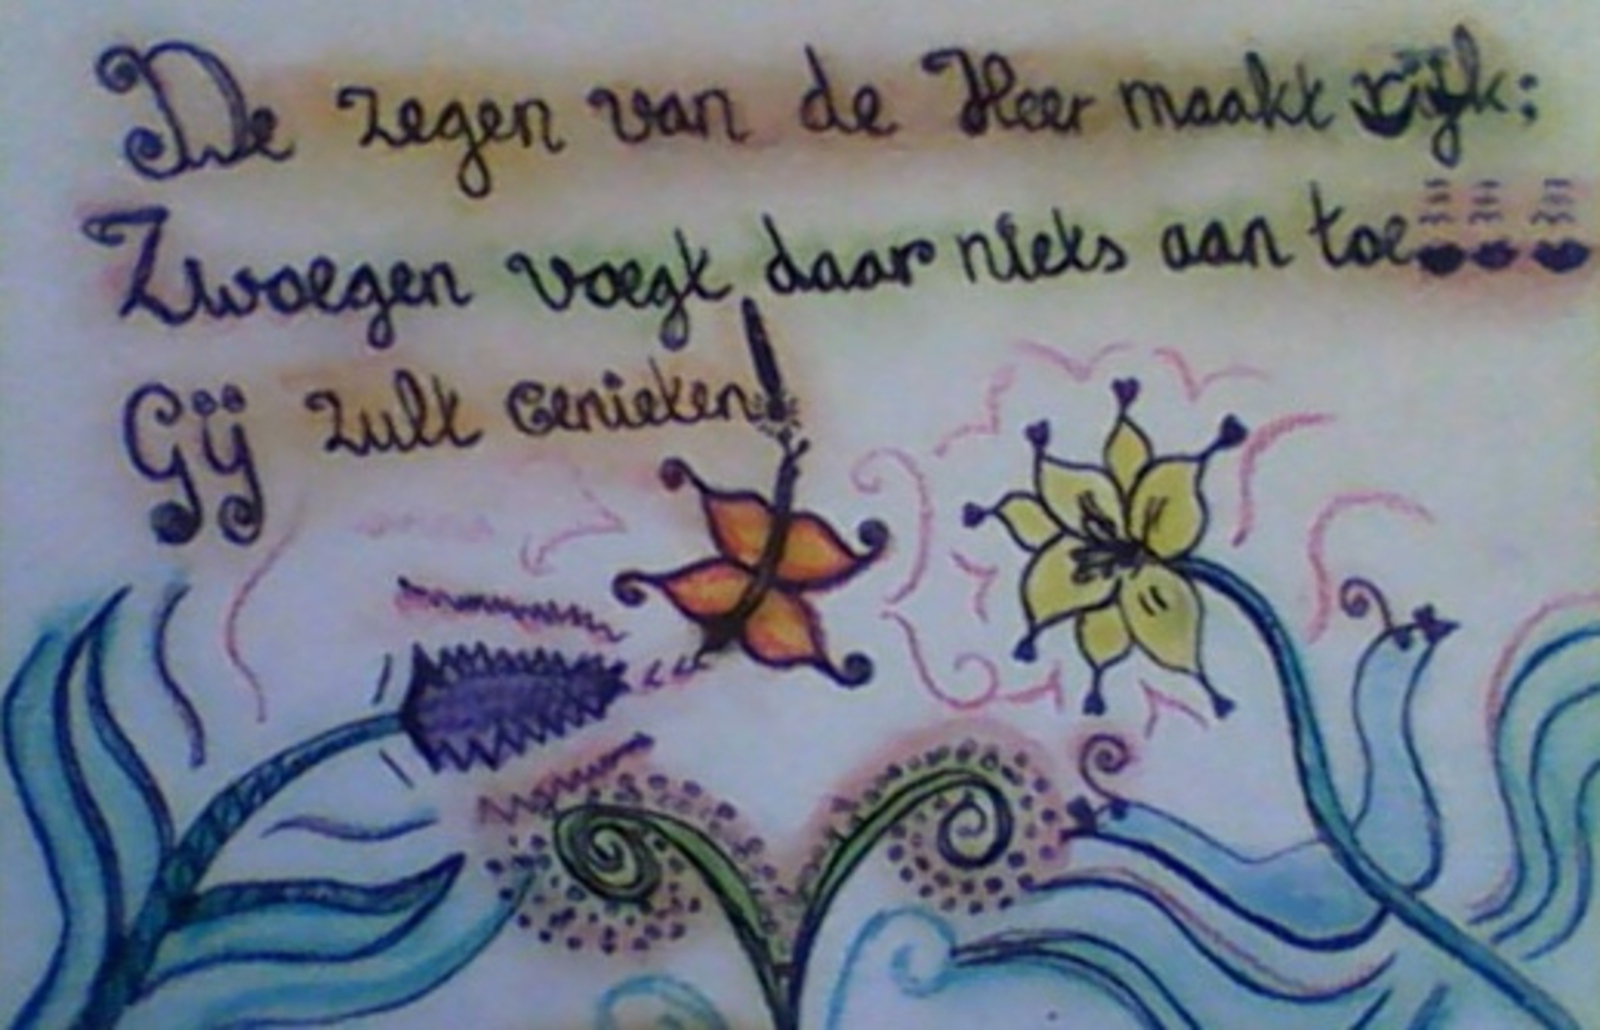 De zegen van de Heer maakt rijk:
Zwoegen voegt daar niets aan toe...
Gij zult Genieten!